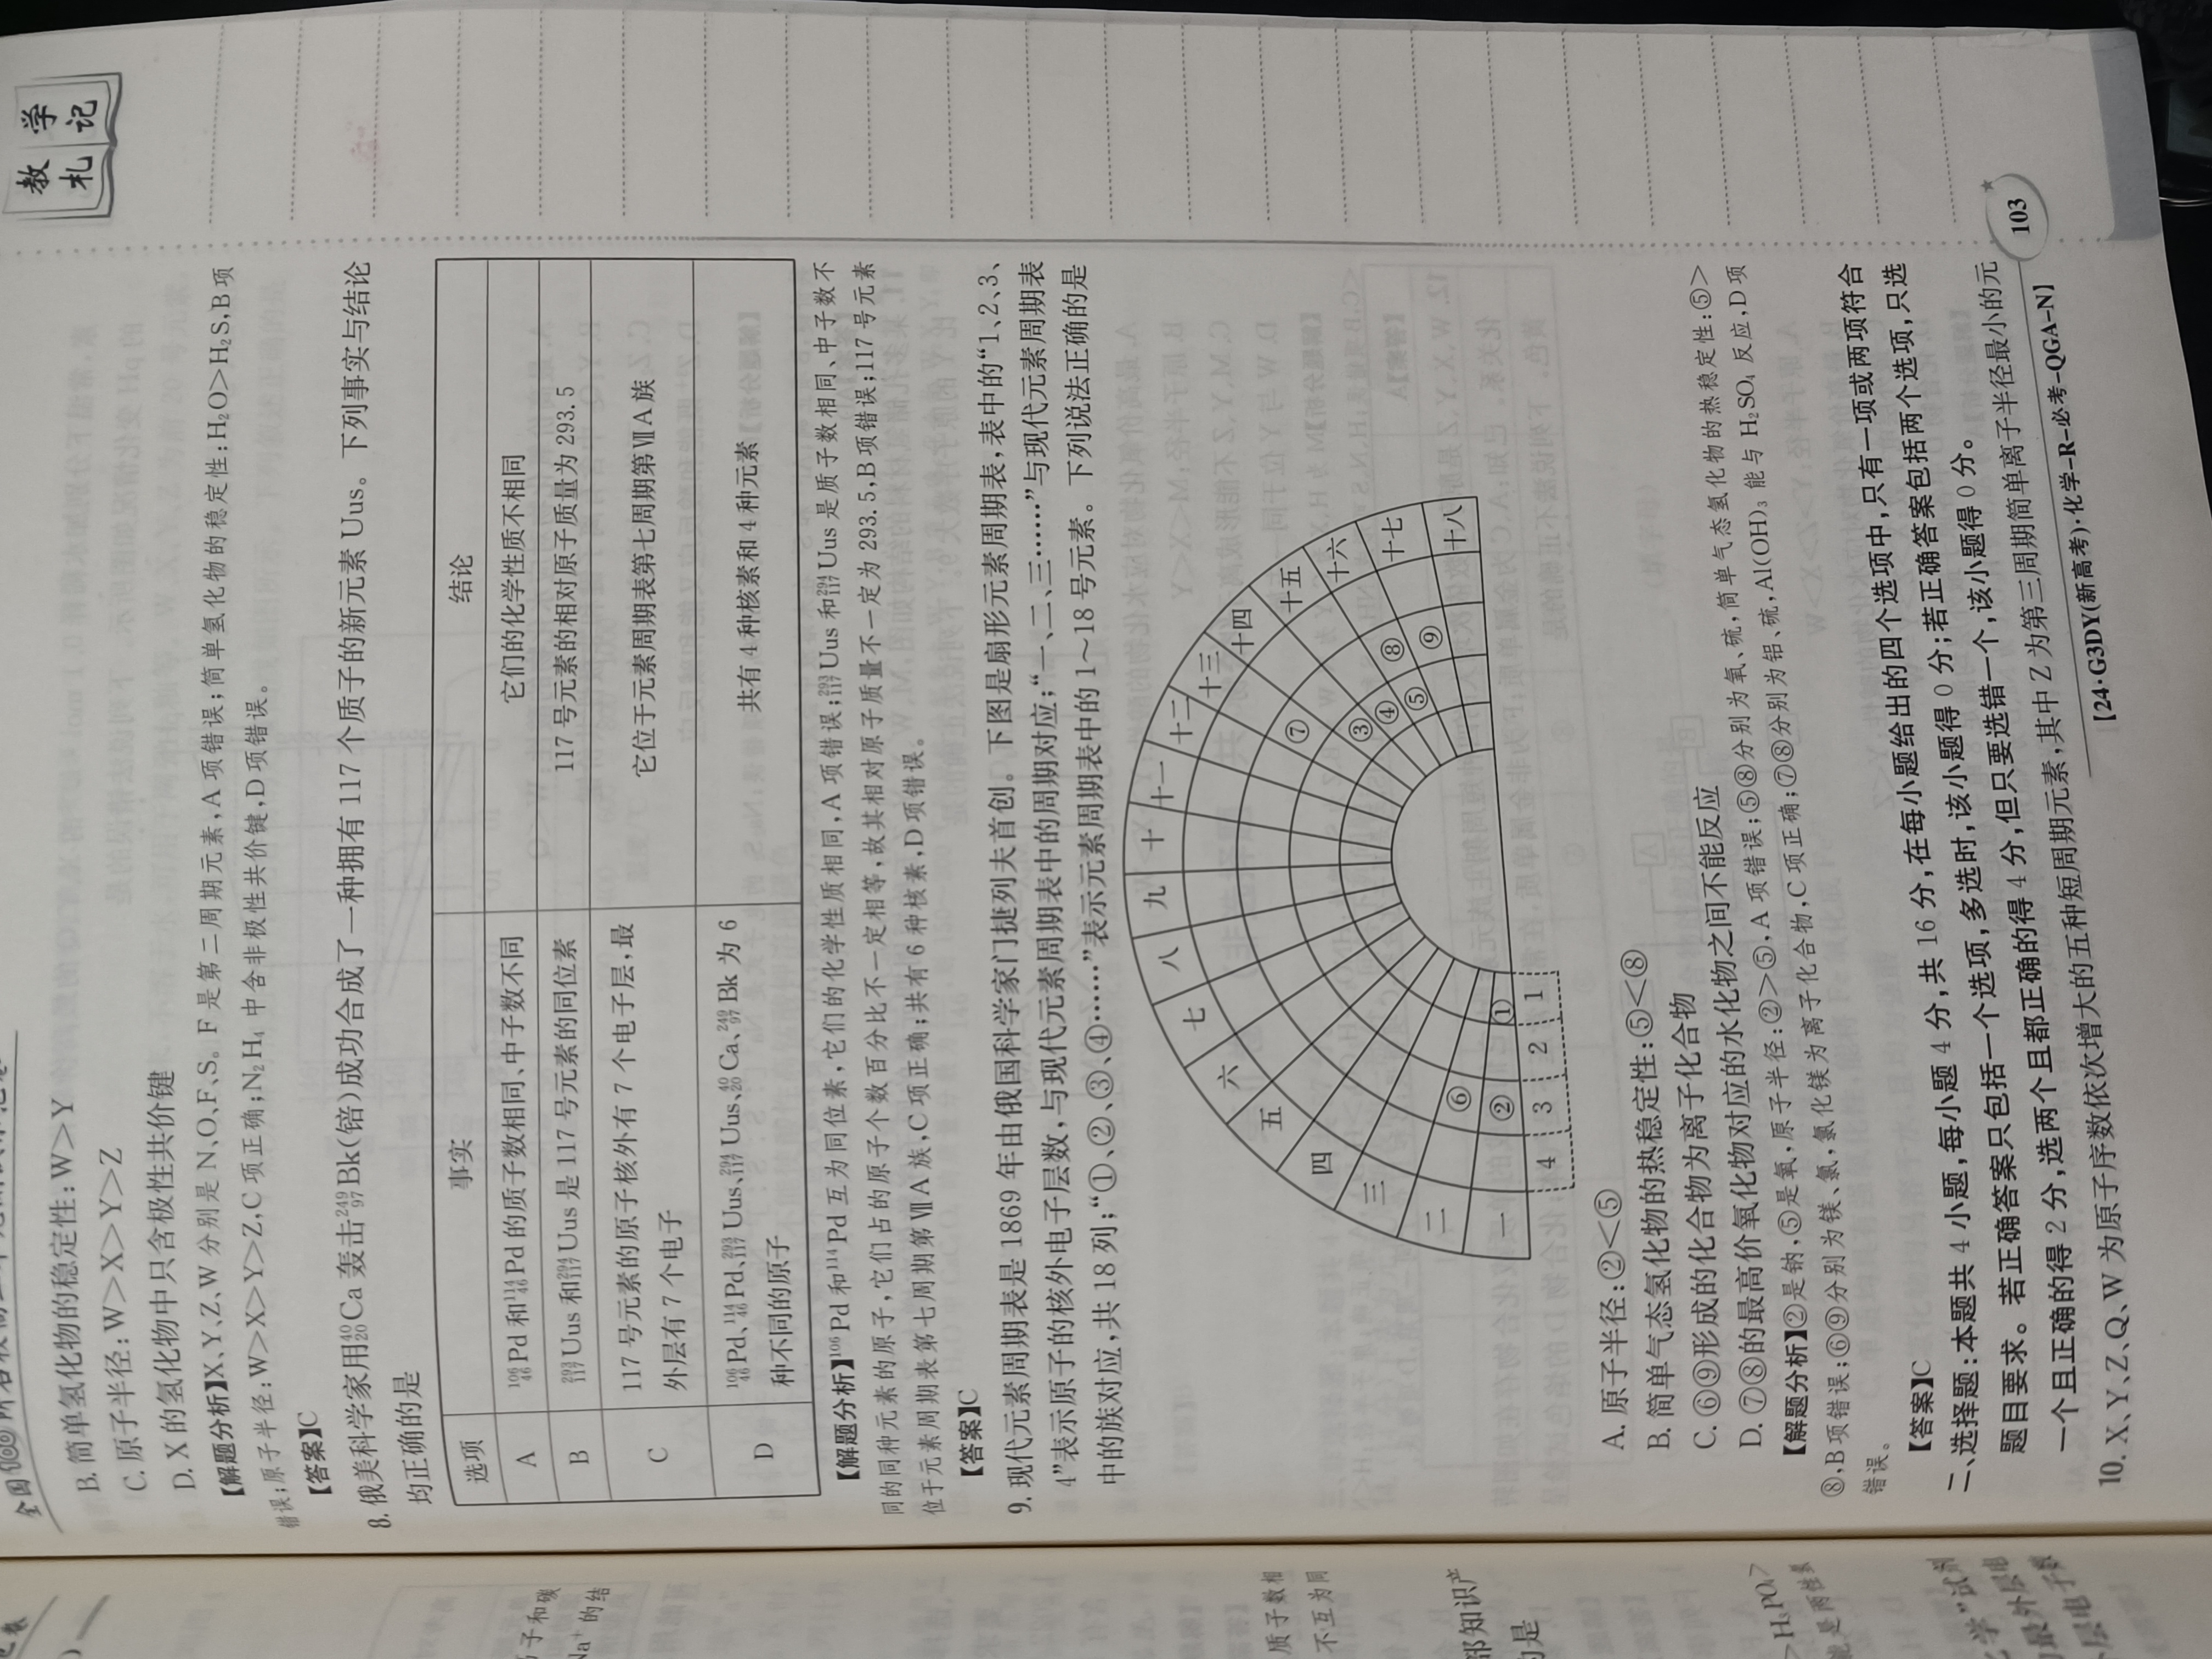 教学
札记
B. 简单氢化物的稳定性:W>Y
C. 原子半径:W>X>Y>Z
D. X 的氢化物中只含极性共价键
【解题分析】X、Y、Z、W 分别是 N、O、F、S。F 是第二周期元素,A 项错误;简单氢化物的稳定性:H₂O>H₂S,B 项
错误;原子半径:W>X>Y>Z,C 项正确;N₂H₄ 中含非极性共价键,D 项错误。
【答案】C
8. 俄美科学家用⁴⁰₂₀Ca 轰击²⁴⁹₉₇Bk(锫)成功合成了一种拥有 117 个质子的新元素 Uus。下列事实与结论
均正确的是
选项 事实 结论
A ¹⁰⁶₄₆Pd 和¹¹⁴₄₆Pd 的质子数相同、中子数不同 它们的化学性质不相同
B ²⁹³₁₁₇Uus 和²⁹⁴₁₁₇Uus 是 117 号元素的同位素 117 号元素的相对原子质量为 293.5
C 117 号元素的原子核外有 7 个电子层,最 它位于元素周期表第七周期第ⅦA 族
外层有 7 个电子
D ¹⁰⁶₄₆Pd、¹¹⁴₄₆Pd、²⁹³₁₁₇Uus、²⁹⁴₁₁₇Uus、⁴⁰₂₀Ca、²⁴⁹₉₇Bk 为 6 共有 4 种核素和 4 种元素
种不同的原子
【解题分析】¹⁰⁶Pd 和¹¹⁴Pd 互为同位素,它们的化学性质相同,A 项错误;²⁹³₁₁₇Uus 和²⁹⁴₁₁₇Uus 是质子数相同、中子数不
同的同种元素的原子,它们占的原子个数百分比不一定相等,故其相对原子质量不一定为 293.5,B 项错误;117 号元素
位于元素周期表第七周期第ⅦA 族,C 项正确;共有 6 种核素,D 项错误。
【答案】C
9. 现代元素周期表是 1869 年由俄国科学家门捷列夫首创。下图是扇形元素周期表,表中的“1、2、3、
4”表示原子的核外电子层数,与现代元素周期表中的周期对应;“一、二、三……”与现代元素周期表
中的族对应,共 18 列;“①、②、③、④……”表示元素周期表中的 1~18 号元素。下列说法正确的是
一 二 三 四 五 六 七 八 九 十 十一 十二 十三 十四 十五 十六 十七 十八
⑦ ③ ④ ⑤ ⑧ ⑨
⑥ ② ①
4 3 2 1
A. 原子半径:②<⑤
B. 简单气态氢化物的热稳定性:⑤<⑧
C. ⑥⑨形成的化合物为离子化合物
D. ⑦⑧的最高价氧化物对应的水化物之间不能反应
【解题分析】②是钠,⑤是氧,原子半径:②>⑤,A 项错误;⑤⑧分别为氧、硫,简单气态氢化物的热稳定性:⑤>
⑧,B 项错误;⑥⑨分别为镁、氯,氯化镁为离子化合物,C 项正确;⑦⑧分别为铝、硫,Al(OH)₃ 能与 H₂SO₄ 反应,D 项
错误。
【答案】C
二、选择题:本题共 4 小题,每小题 4 分,共 16 分,在每小题给出的四个选项中,只有一项或两项符合
题目要求。若正确答案只包括一个选项,多选时,该小题得 0 分;若正确答案包括两个选项,只选
一个且正确的得 2 分,选两个且都正确的得 4 分,但只要选错一个,该小题得 0 分。
10. X、Y、Z、Q、W 为原子序数依次增大的五种短周期元素,其中 Z 为第三周期简单离子半径最小的元
103
【24·G3DY(新高考)·化学-R-必考-QGA-N】
子和碳
Na⁺的结
质子数相
不互为同
部知识产
的是
>H₃PO₄>